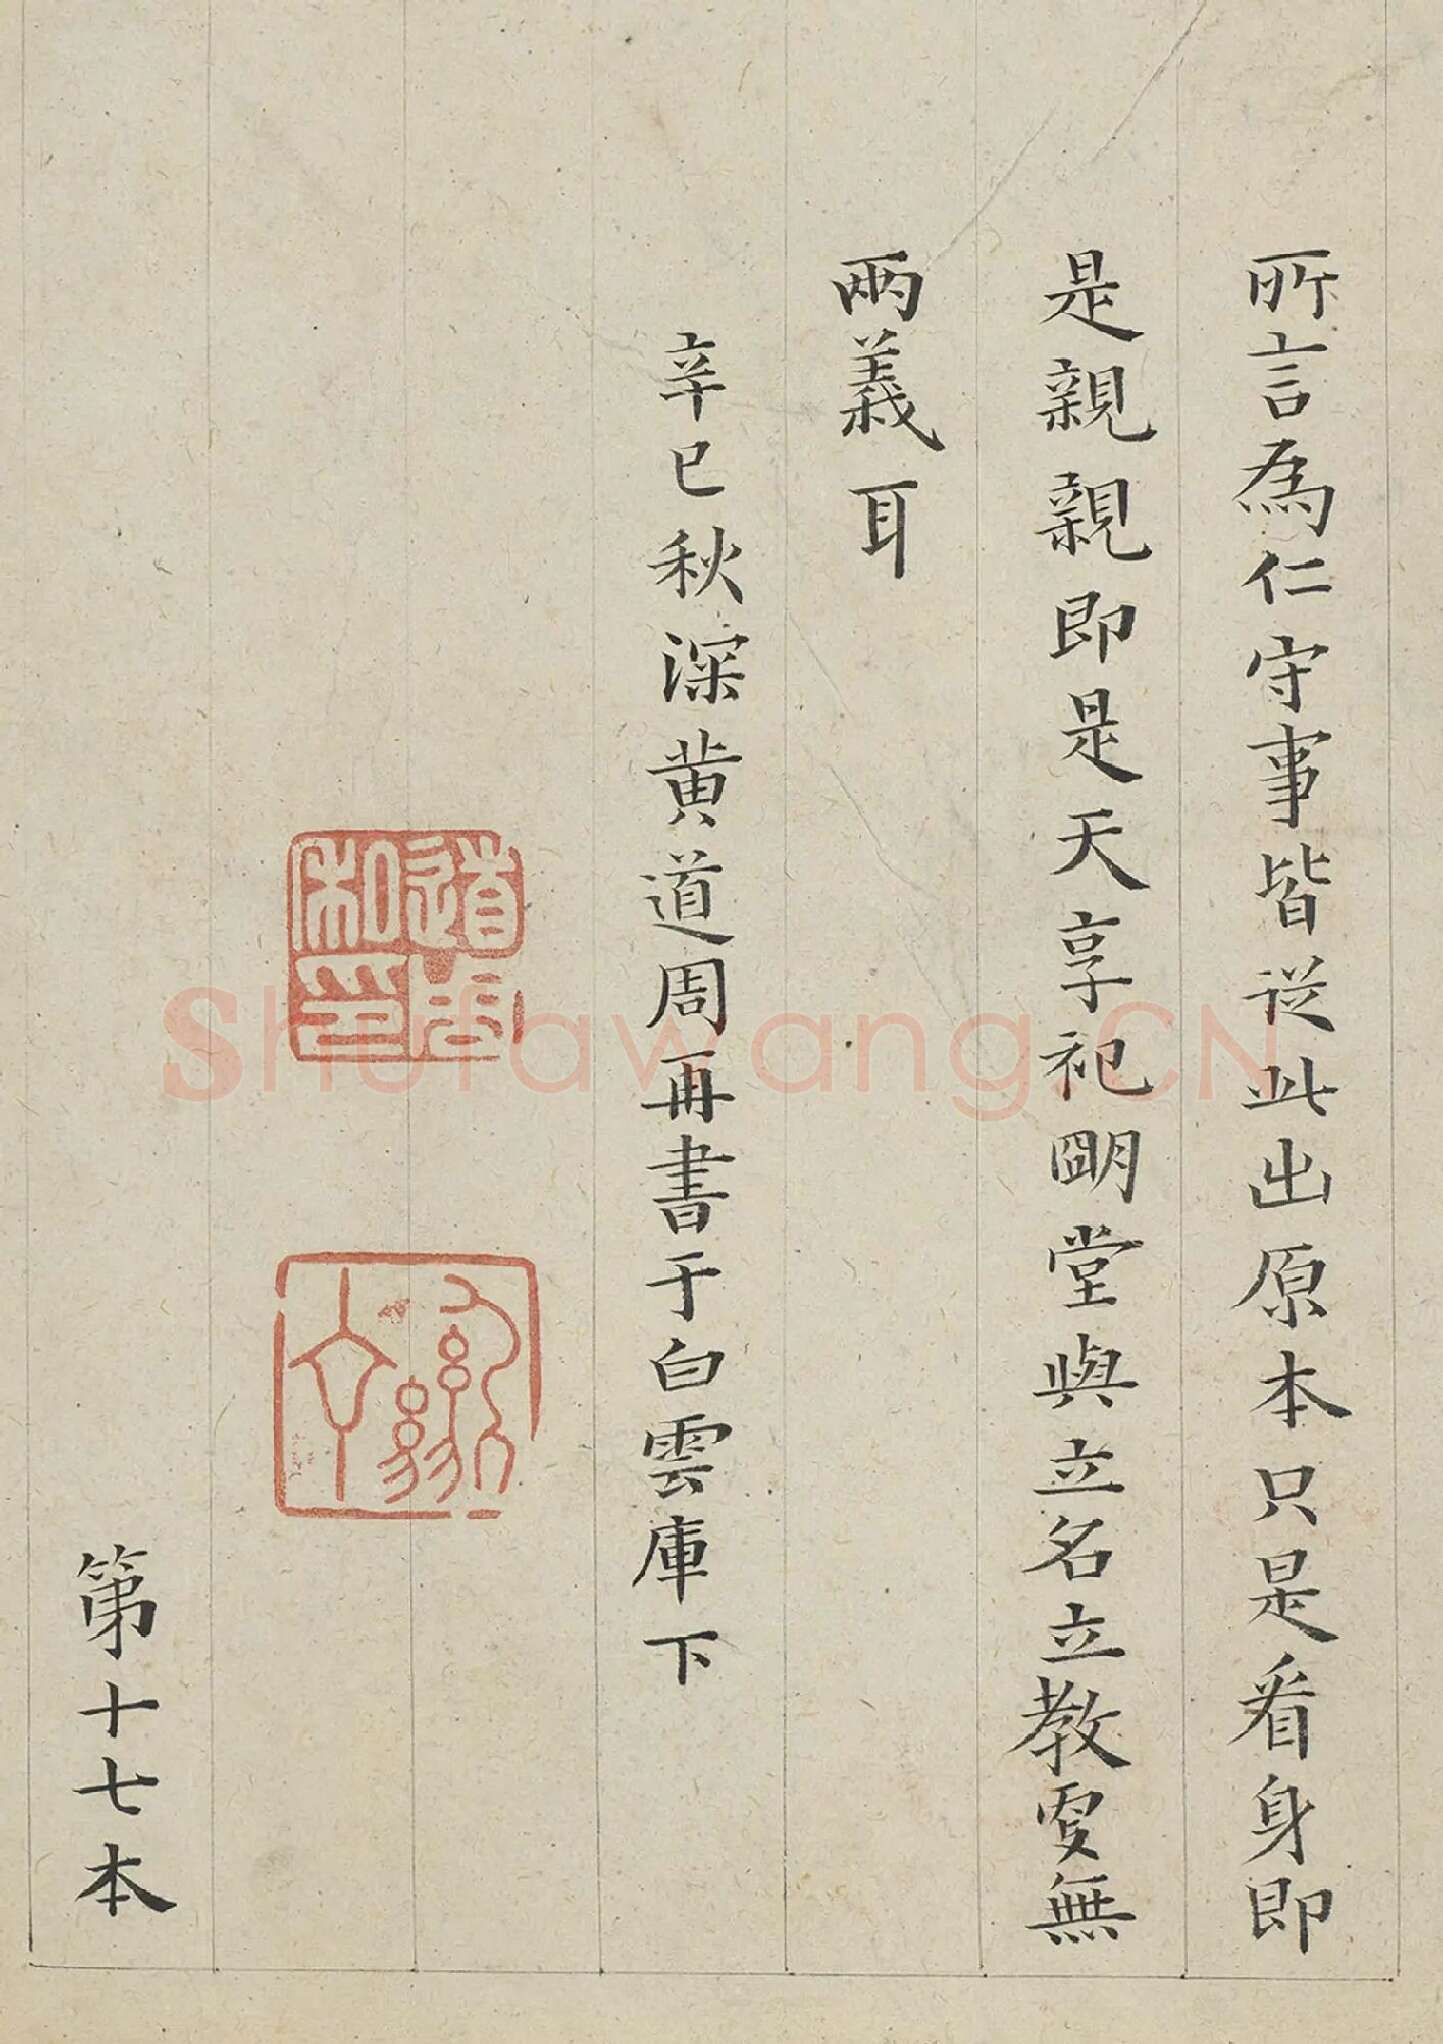 所言為仁守事皆從此出原本只是看身即
是親親即是天享祀朙堂與立名立教更無
兩義耳
辛巳秋深黄道周再書于白雲庫下
第十七本
Shufawang.CN